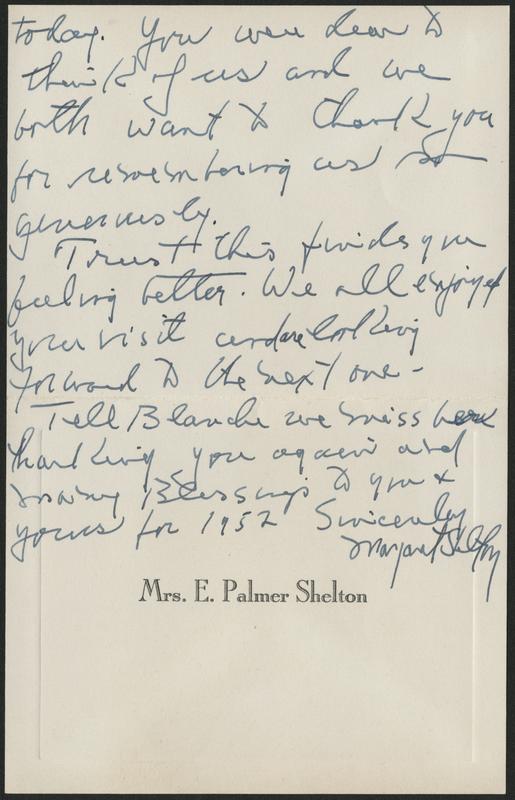 today. You were dear to
think of us and we
both want to thank you
for remembering us so
generously.
Trust this finds you
feeling better. We all enjoyed
your visit and are looking
forward to the next one -
Tell Blanche we miss her
thanking you again and
many Blessings to you &
yours for 1952 Sincerely
Margaret Shelton
Mrs. E. Palmer Shelton